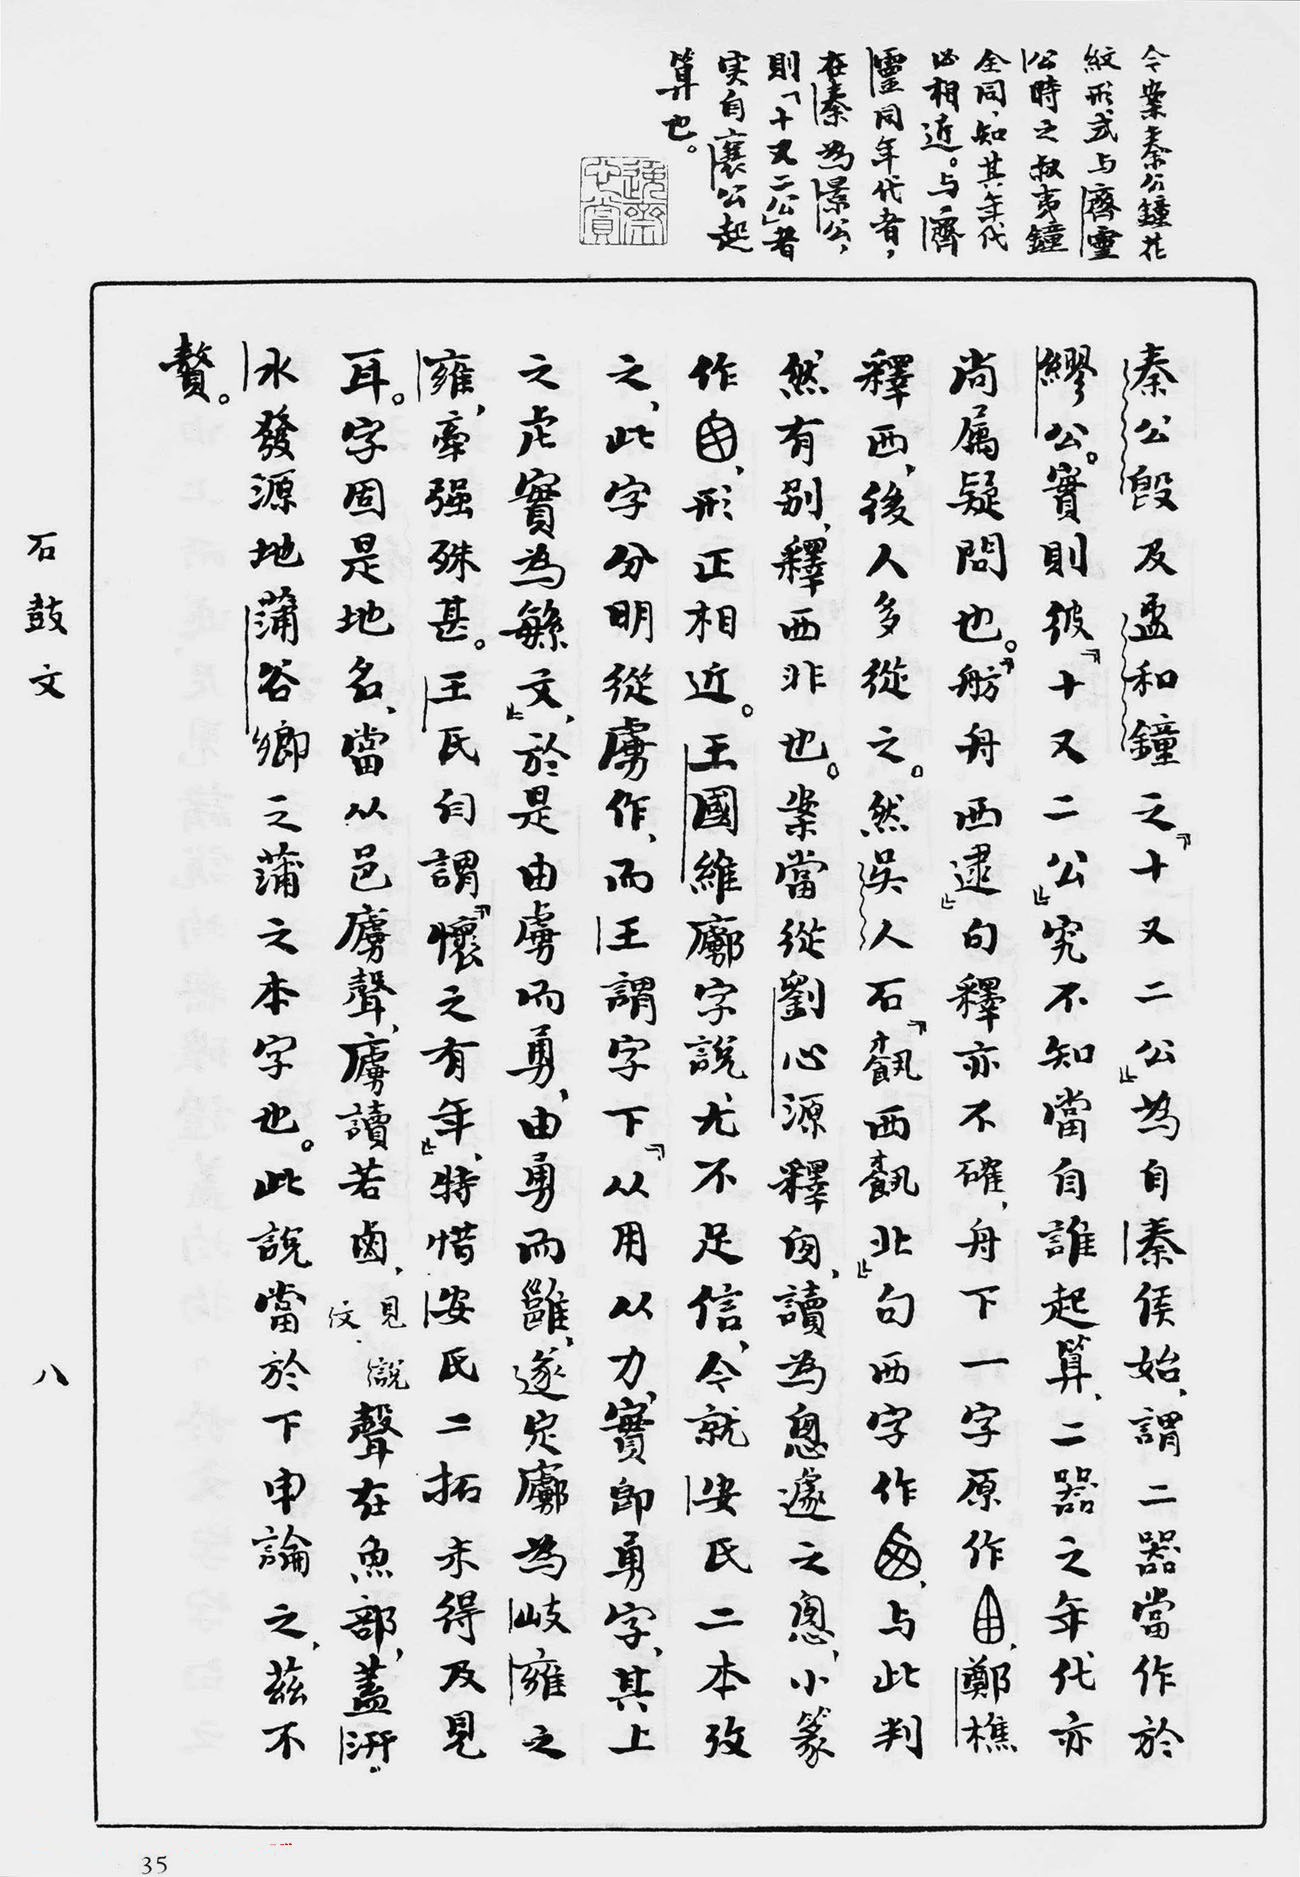 今案秦公鐘花
紋形式与齊霝
公時之叔夷鐘
全同，知其年代
必相近。与齊
霝同年代者，
在秦為景公，
則「十又二公」者
实自襄公起
算也。
秦公𣪘及盄和鐘之「十又二公」為自秦侯始，謂二器當作於
繆公。實則彼「十又二公」究不知當自誰起算，二器之年代亦
尚属疑問也。「舫舟西逮」句釋亦不確，舟下一字原作，鄭樵
釋西，後人多從之。然吳人石「西北」句西字作，与此判
然有别，釋西非也。案當從劉心源釋囱，讀為悤遽之悤，小篆
作，形正相近。王國維廊字説尤不足信，今就安氏二本攷
之，此字分明從虜作，而王謂字下「从用从力，實即勇字，其上
之虍實為緐文」，於是由虜而勇，由勇而雝，遂定為岐雍之
雍，牽强殊甚。王氏自謂「懷之有年」，特惜安氏二拓未得及見
耳。字固是地名，當从邑虜聲，虜讀若鹵，見説文．聲在魚部，蓋汧
水發源地蒲谷鄉之蒲之本字也。此説當於下申論之，茲不
贅。
石鼓文
八
35